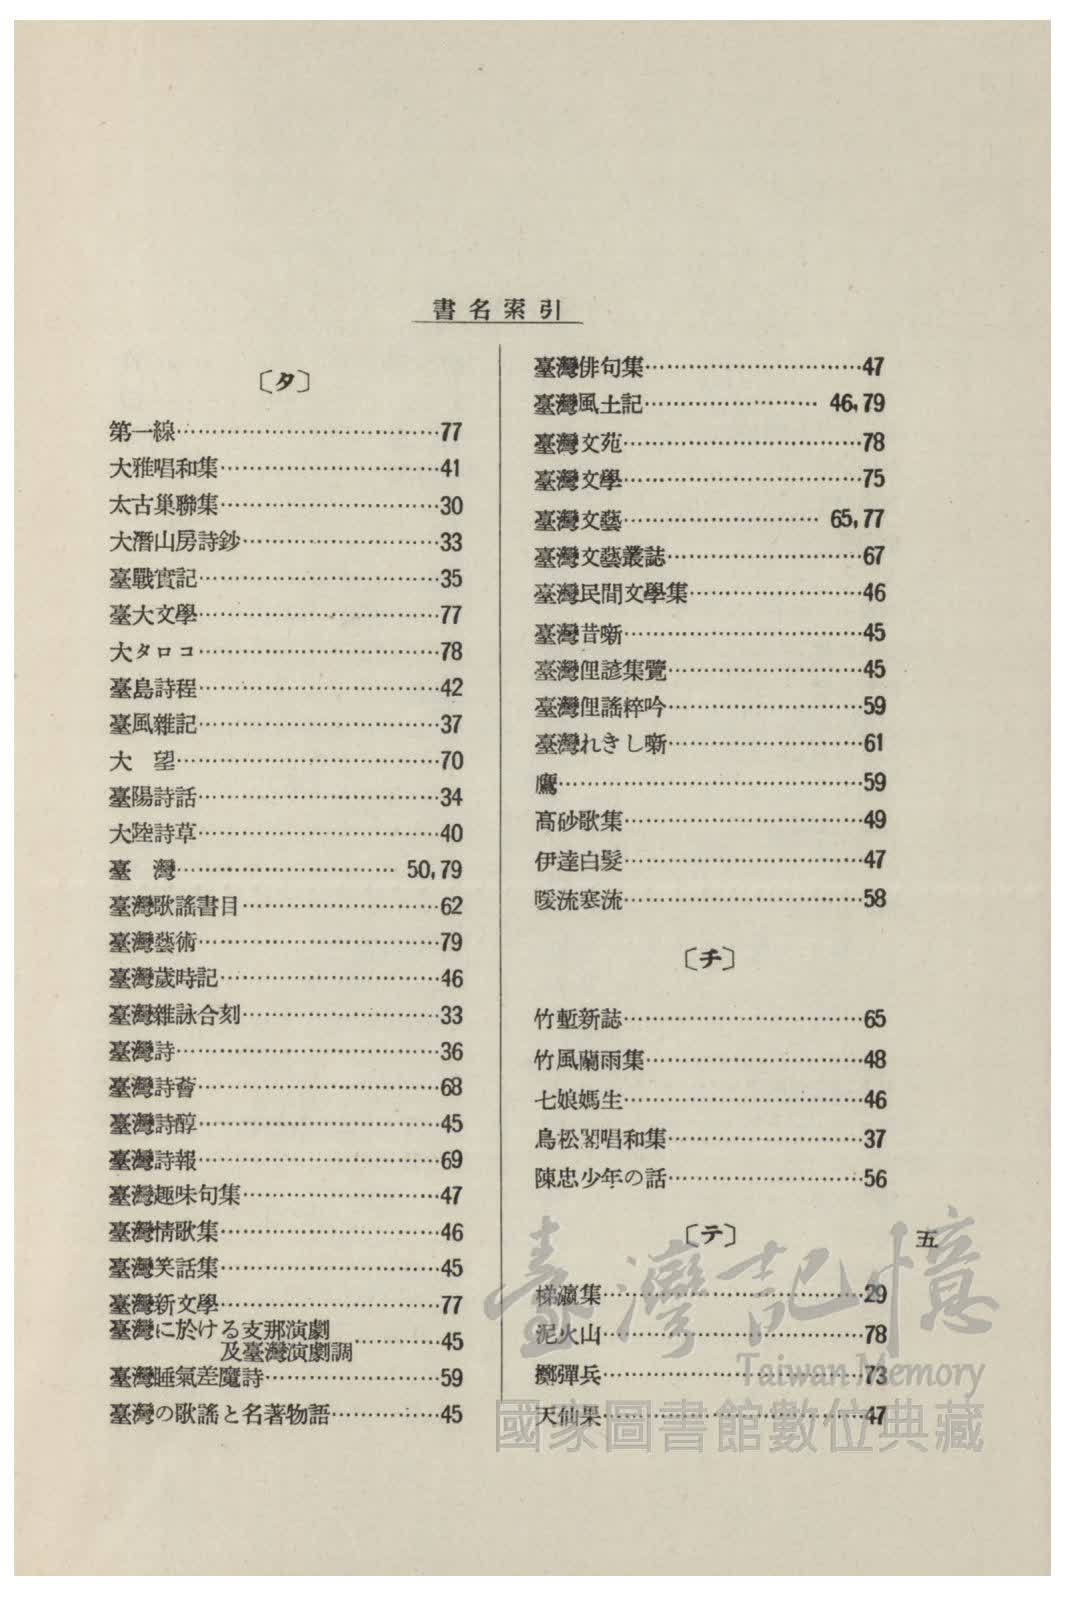 書名索引
〔タ〕
第一線……………………………77
大雅唱和集………………………41
太古巢聯集………………………30
大潛山房詩鈔……………………33
臺戰實記…………………………35
臺大文學…………………………77
大タロコ…………………………78
臺島詩程…………………………42
臺風雜記…………………………37
大　望……………………………70
臺陽詩話…………………………34
大陸詩草…………………………40
臺　灣………………………50,79
臺灣歌謠書目……………………62
臺灣藝術…………………………79
臺灣歲時記………………………46
臺灣雜詠合刻……………………33
臺灣詩……………………………36
臺灣詩薈…………………………68
臺灣詩醇…………………………45
臺灣詩報…………………………69
臺灣趣味句集……………………47
臺灣情歌集………………………46
臺灣笑話集………………………45
臺灣新文學………………………77
臺灣に於ける支那演劇
及臺灣演劇調…………45
臺灣睡氣差魔詩…………………59
臺灣の歌謠と名著物語…………45
臺灣俳句集………………………47
臺灣風土記…………………46,79
臺灣文苑…………………………78
臺灣文學…………………………75
臺灣文藝……………………65,77
臺灣文藝叢誌……………………67
臺灣民間文學集…………………46
臺灣昔噺…………………………45
臺灣俚諺集覽……………………45
臺灣俚謠粹吟……………………59
臺灣れきし噺……………………61
鷹…………………………………59
高砂歌集…………………………49
伊達白髮…………………………47
暖流寒流…………………………58
〔チ〕
竹塹新誌…………………………65
竹風蘭雨集………………………48
七娘媽生…………………………46
鳥松閣唱和集……………………37
陳忠少年の話……………………56
〔テ〕
五
梯瀛集……………………………29
泥火山……………………………78
擲彈兵……………………………73
天仙果……………………………47
臺灣記憶
Taiwan Memory
國家圖書館數位典藏